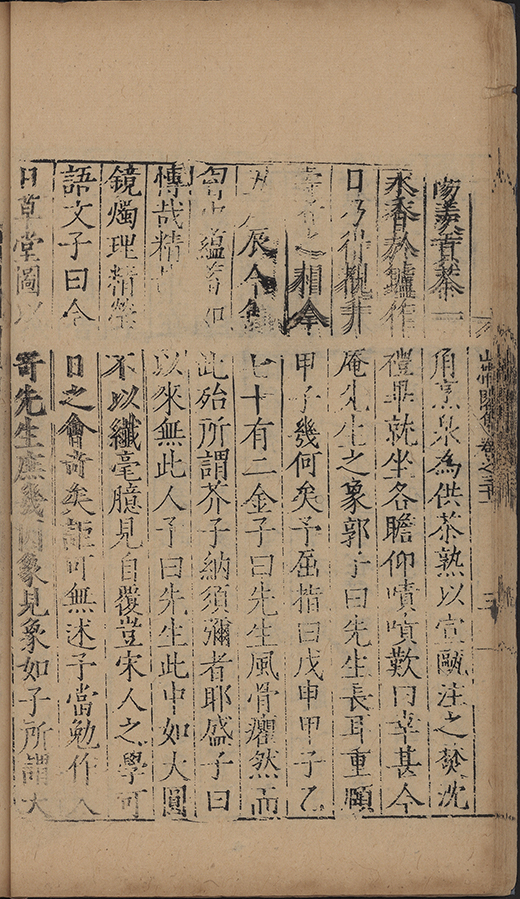 山帶閣集卷之三十
三
陽羨貢茶一角烹泉為供茶熟以宣甌注之焚沈
水香於鑪作禮畢就坐各瞻仰嘖嘖歎曰幸甚今
日乃得親升庵先生之象郭子曰先生長耳重頤
壽者之相今甲子幾何矣予屈指曰戊申甲子乙
辰今七十有二金子曰先生風骨癯然而
匈中蘊畜如此殆所謂芥子納須彌者耶盛子曰
博哉精以來無此人予曰先生此中如大圓
鏡燭理精瑩不以纖毫臆見自覆豈宋人之學可
語文子曰今日之會奇矣詎可無述子當勉作人
日草堂圖以寄先生庶幾因象見象如子所謂大